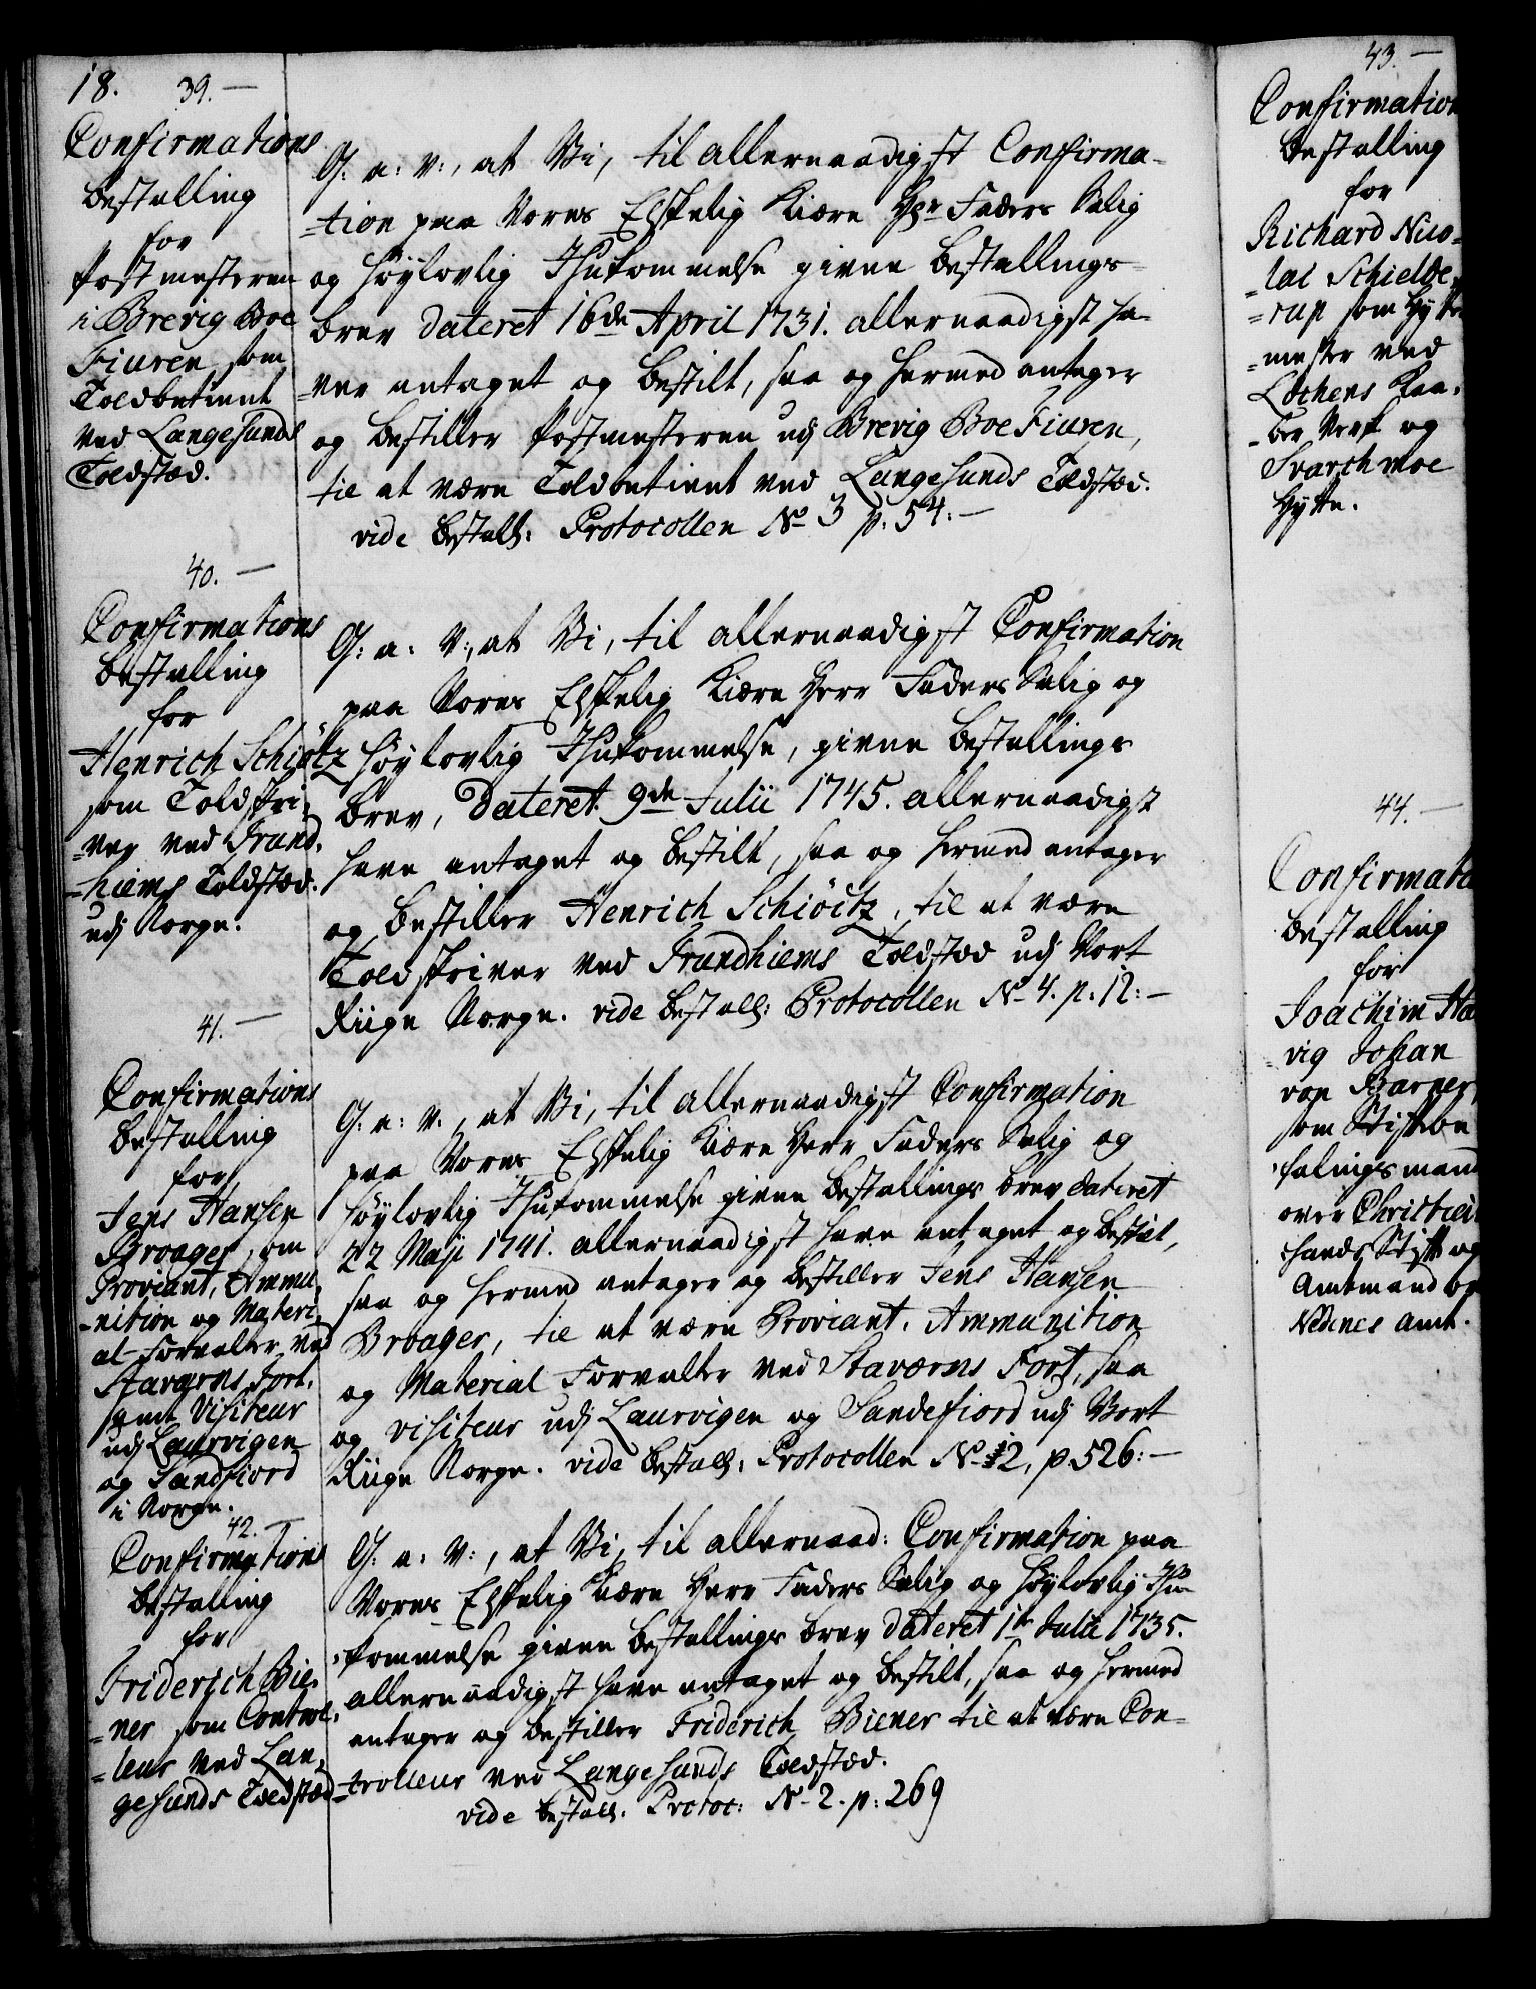 18. 39.—
Confirmations
Bestalling
for
Postmesteren
i Brevig Boe
Fiuren som
Toldbetient
ved Langesunds
Toldstæd.
G: a: V:, at Vi, til allernaadigst Confirma-
=tion paa Vores Elskelig Kiære Hr Faders Salig
og Høylovlig Ihukommelse givne Bestallings-
brev dateret 16de April 1731. allernaadigst ha-
=ver antaget og bestilt, saa og hermed antager
og bestiller Postmesteren udj Brevig Boe Fiuren,
til at være Toldbetient ved Langesunds Toldstæd.
vide Bestall: Protocollen No 3 p. 54:—
40.—
Confirmations
Bestalling
for
Henrich Schiøtz
som Toldskri-
=ver ved Trund-
=hiems Toldstæd.
udj Norge.
G: a: V:, at Vi, til allernaadigst Confirmation
paa Vores Elskelig Kiære Herr Faders Salig og
Høylovlig Ihukommelse, givne Bestallings
brev, dateret 9de Julii 1745. allernaadigst
have antaget og bestilt, saa og hermed antager
og bestiller Henrich Schiöitz, til at være
Toldskriver ved Trundhiems Toldstæd udj Vort
Riige Norge. vide Bestall: Protocollen No 4. p. 12:—
41.—
Confirmations
Bestalling
for
Jens Hansen
Broager, som
Proviant, Ammu-
=nition og Materi-
al-Forvalter ved
Staværns Fort,
samt Visiteur
udj Laurvigen
og Sandfiord
i Norge.
G: a: V:, at Vi, til allernaadigst Confirmation
paa Vores Elskelig Kiære Herr Faders Salig og
Høylovlig Ihukommelse givne Bestallings brev dateret
22 Maji 1741. allernaadigst have antaget og bestilt,
saa og hermed antager og bestiller Jens Hansen
Broager, til at være Proviant, Ammunition
og Material Forvalter ved Staværns Fort, saa
og visiteur udj Laurvigen og Sandefiord udj Vort
Riige Norge. vide Bestall: Protocollen No 2, p. 526:—
42.—
Confirmations
Bestalling
for
Friderich Bie-
=ner som Control-
=leur ved Lan-
gesunds Toldstæd
G: a: V:, at Vi, til allernaad: Confirmation paa
Vores Elskelig Kiære Herr Faders Salig og Høylovlig Ihu-
=kommelse givne Bestallings brev dateret 1te Julii 1735.
allernaadigst have antaget og bestilt, saa og hermed
antager og bestiller Friderich Biener til at være Con-
=trolleur ved Langesunds Toldstæd.
vide Bestall. Protoc: No 2. p: 269
43.—
Confirmation
Bestalling
for
Richard Nico-
=lai Schielde-
=rup som Hytte
=mester ved
Löchens Kaa-
=ber Verk og
Svarchmoe
Hytte.
44.—
Confirmati
Bestalling
for
Joachim Ha
vig Johan
von Barner,
som Stiftbe
=falingsmand
over Christia
=sands Stift og
Amtmand ov
Nedenes Amt.